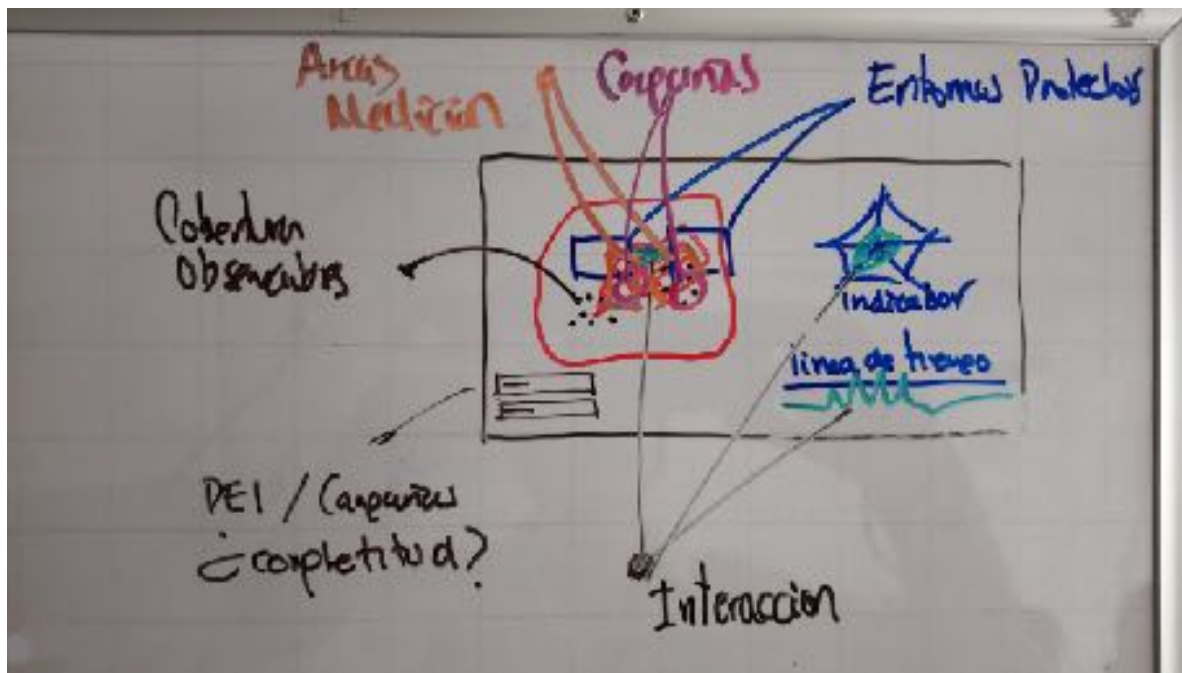 Areas
Medicion
Campañas
Entornos Protector
Cobertura
Observadores
indicador
linea de tiempo
DEI / Campañas
¿completitud?
Interaccion